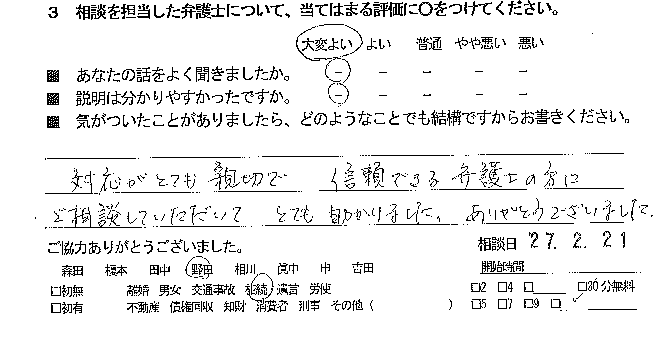 3 相談を担当した弁護士について、当てはまる評価に○をつけてください。
大変よい よい 普通 やや悪い 悪い
■ あなたの話をよく聞きましたか。 - - - - -
■ 説明は分かりやすかったですか。 - - - - -
■ 気がついたことがありましたら、どのようなことでも結構ですからお書きください。
対応がとても親切で 信頼できる弁護士の方に
ご相談していただいて とても助かりました。ありがとうございました。
ご協力ありがとうございました。
相談日 27.2.21
森田 榎本 田中 野田 相川 眞中 申 吉田 開始時間
□初無 離婚 男女 交通事故 相続 遺言 労使 □2 □4 □ □30分無料
□初有 不動産 債権回収 知財 消費者 刑事 その他( ) □5 □7 □9 □